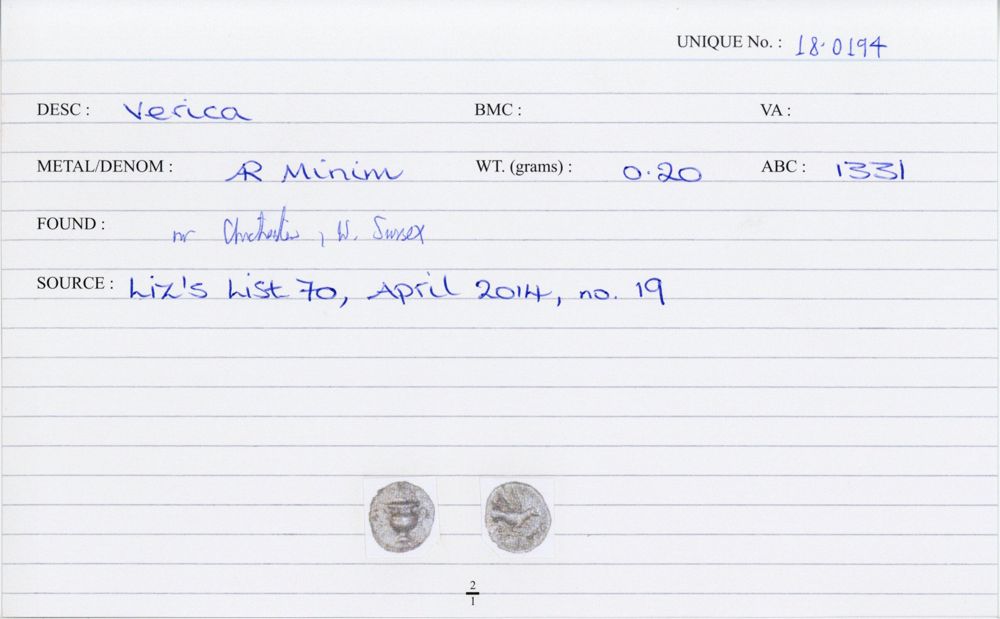 UNIQUE No. : 18.0194
DESC : Verica BMC : VA :
METAL/DENOM : AR Minim WT. (grams) : 0.20 ABC : 1331
FOUND : nr Chichester, W. Sussex
SOURCE : Liz's List 70, April 2014, no. 19
2
1